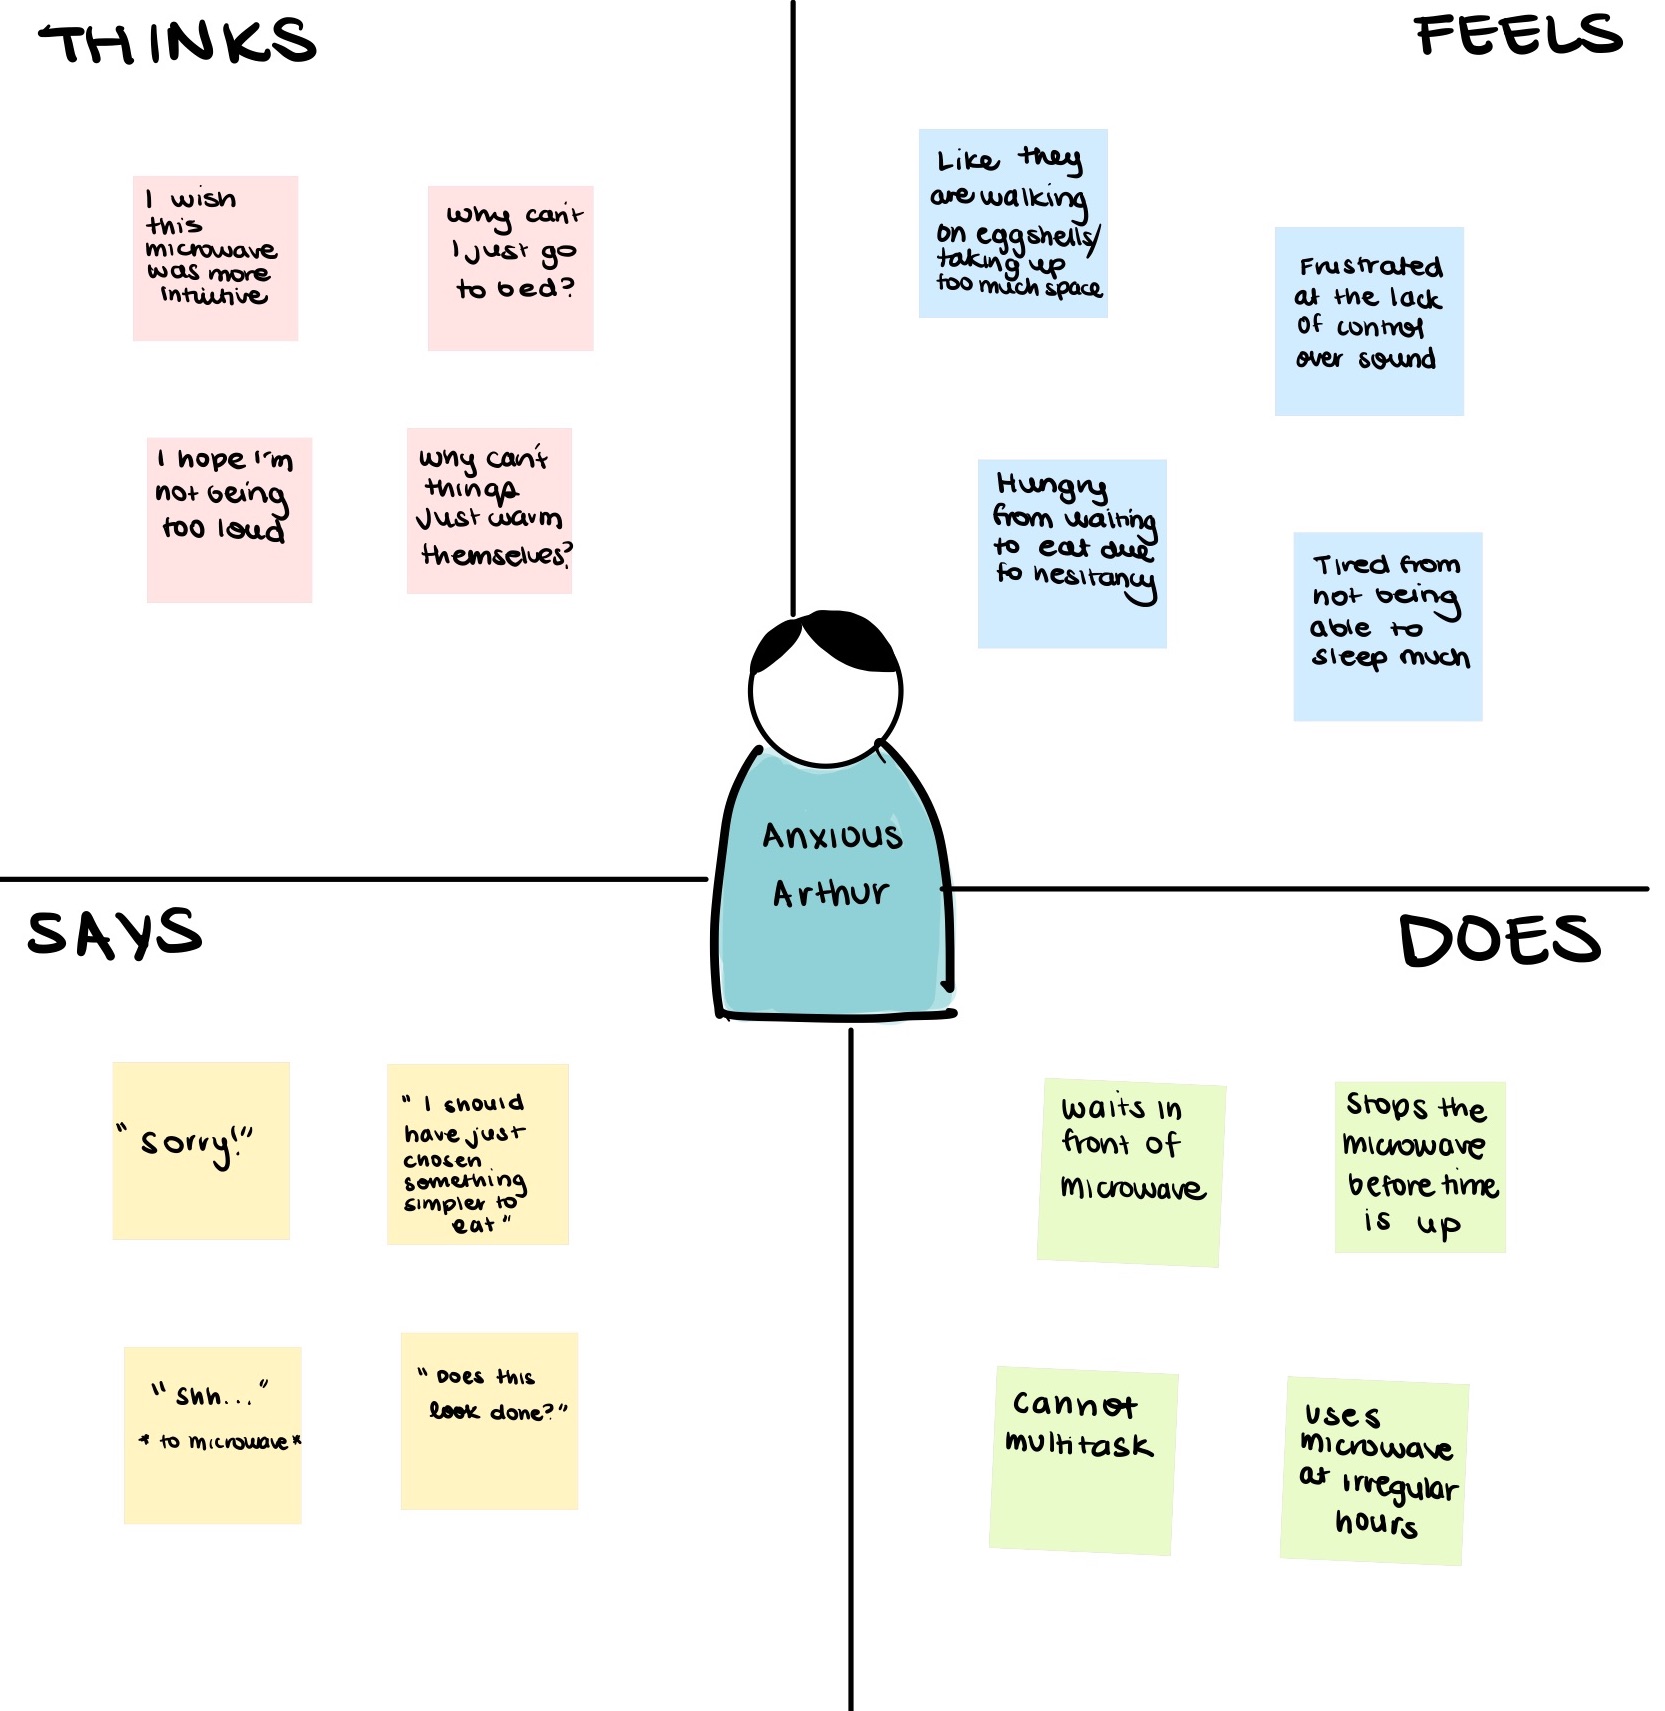 THINKS
I wish
this
microwave
was more
intuitive
why can't
I just go
to bed?
I hope I'm
not being
too loud
why can't
things
just warm
themselves?
FEELS
Like they
are walking
on eggshells/
taking up
too much space
Frustrated
at the lack
of control
over sound
Hungry
from waiting
to eat due
to hesitancy
Tired from
not being
able to
sleep much
Anxious
Arthur
SAYS
"sorry!"
"I should
have just
chosen
something
simpler to
eat"
"shh..."
*to microwave*
"Does this
look done?"
DOES
waits in
front of
microwave
Stops the
microwave
before time
is up
cannot
multitask
uses
microwave
at irregular
hours